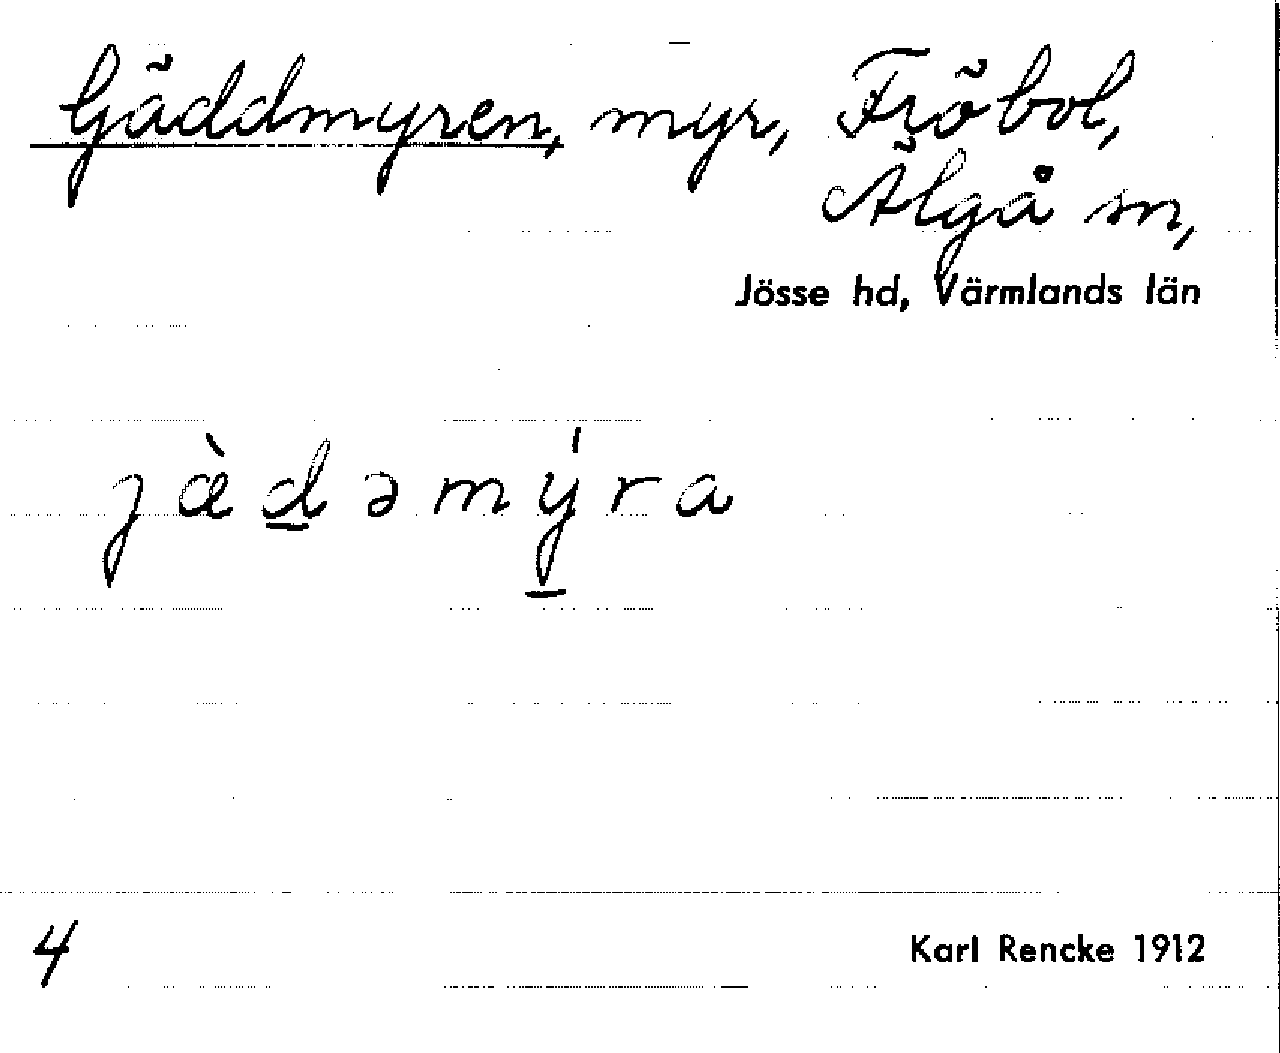 Gäddmyren, myr, Fröbol,
Älgå sn,
Jösse hd, Värmlands län
jæ̀d̲əmý̲ra
4
Karl Rencke 1912